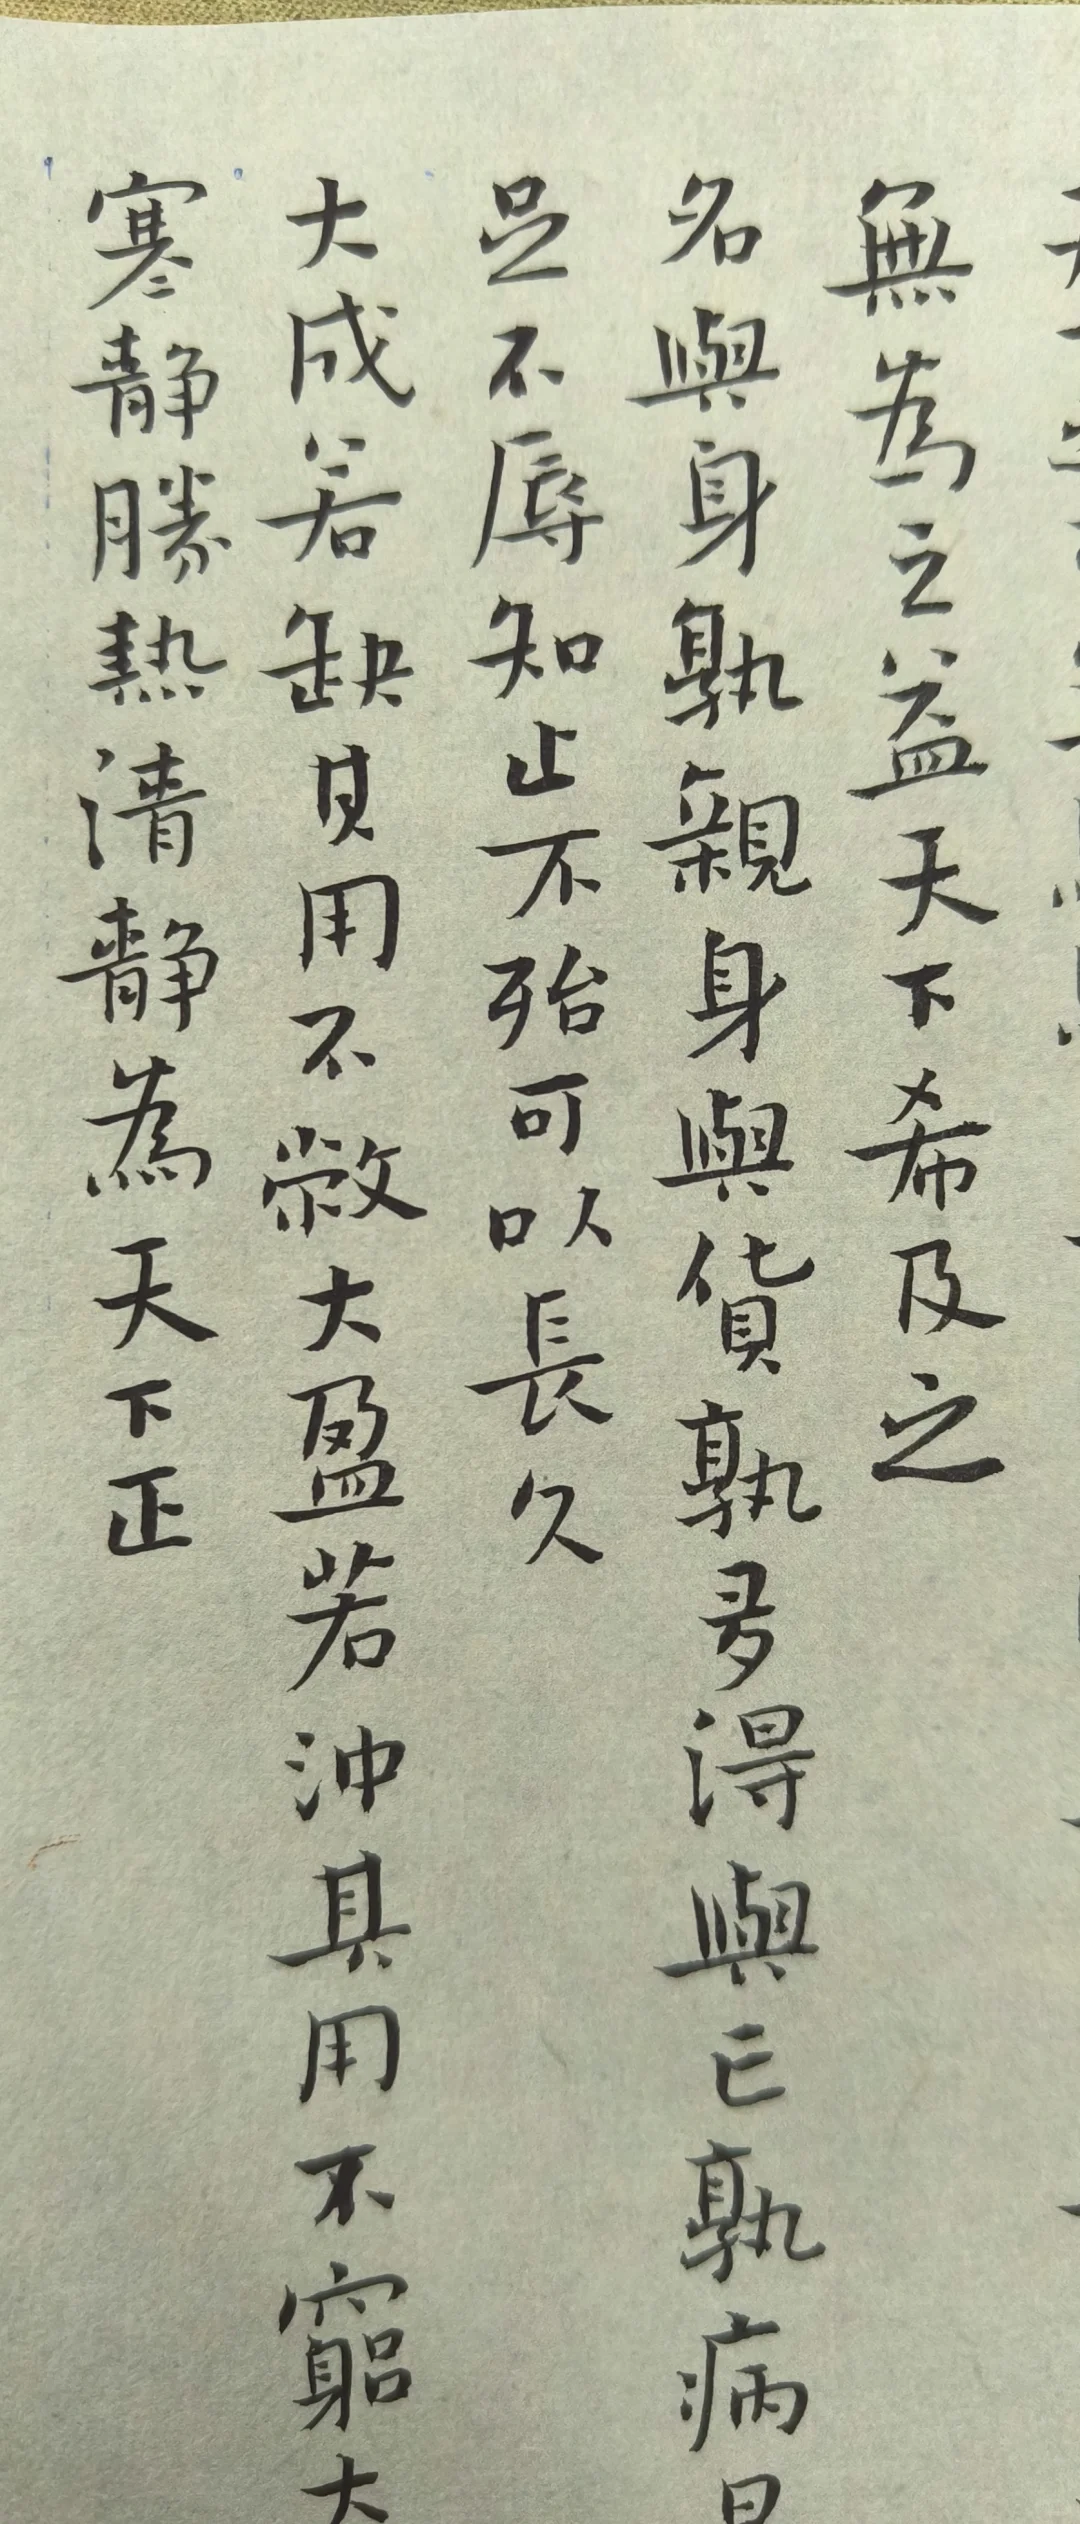 無為之益天下希及之
名與身孰親身與貨孰多得與亡孰病是
足不辱知止不殆可以長久
大成若缺其用不敝大盈若沖其用不窮大
寒静勝熱清静為天下正